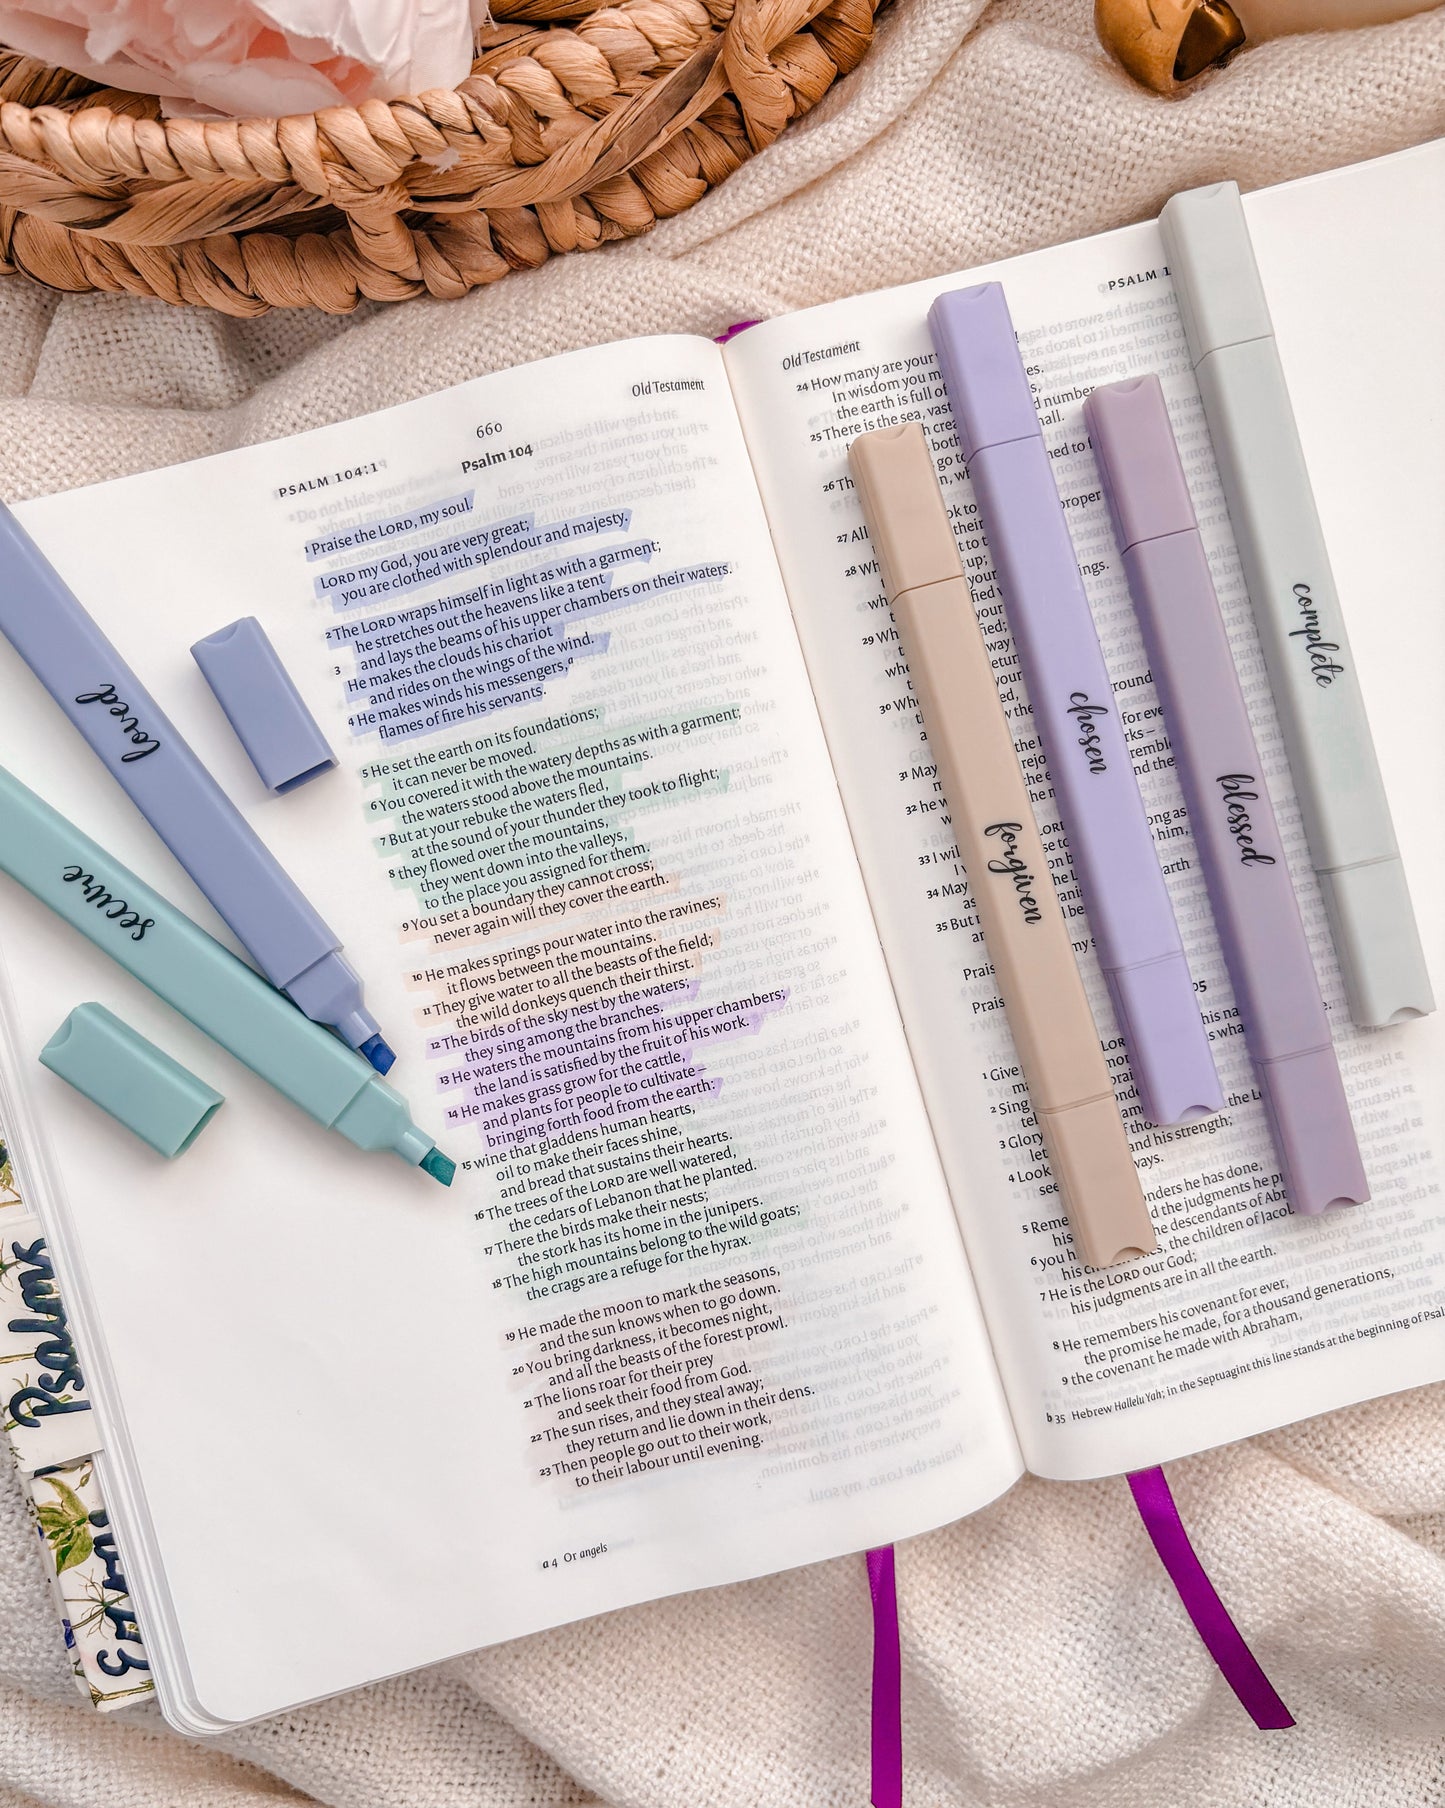 Old Testament
660
PSALM 104:1
Psalm 104
1 Praise the LORD, my soul.
LORD my God, you are very great;
you are clothed with splendour and majesty.
2 The LORD wraps himself in light as with a garment;
he stretches out the heavens like a tent
3 and lays the beams of his upper chambers on their waters.
He makes the clouds his chariot
and rides on the wings of the wind.
4 He makes winds his messengers,a
flames of fire his servants.
5 He set the earth on its foundations;
it can never be moved.
6 You covered it with the watery depths as with a garment;
the waters stood above the mountains.
7 But at your rebuke the waters fled,
at the sound of your thunder they took to flight;
8 they flowed over the mountains,
they went down into the valleys,
to the place you assigned for them.
9 You set a boundary they cannot cross;
never again will they cover the earth.
10 He makes springs pour water into the ravines;
it flows between the mountains.
11 They give water to all the beasts of the field;
the wild donkeys quench their thirst.
12 The birds of the sky nest by the waters;
they sing among the branches.
13 He waters the mountains from his upper chambers;
the land is satisfied by the fruit of his work.
14 He makes grass grow for the cattle,
and plants for people to cultivate –
bringing forth food from the earth:
15 wine that gladdens human hearts,
oil to make their faces shine,
and bread that sustains their hearts.
16 The trees of the LORD are well watered,
the cedars of Lebanon that he planted.
17 There the birds make their nests;
the stork has its home in the junipers.
18 The high mountains belong to the wild goats;
the crags are a refuge for the hyrax.
19 He made the moon to mark the seasons,
and the sun knows when to go down.
20 You bring darkness, it becomes night,
and all the beasts of the forest prowl.
21 The lions roar for their prey
and seek their food from God.
22 The sun rises, and they steal away;
they return and lie down in their dens.
23 Then people go out to their work,
to their labour until evening.
a 4 Or angels
loved
secure
Psalms
Old Testament
PSALM 1
24 How many are your
In wisdom you
the earth is full of
25 There is the sea, vast
number
26
27 All
28
29
30
ground
for eve
31 May
32 he
33 I
earth
34 May
35 But
my
1 Give
2 Sing
3 Glory
and his strength;
4 Look
5
he has done,
the judgments he
6 you
the descendants of
the children of Jacob
7 He is the LORD our God;
his judgments are in all the earth.
8 He remembers his covenant for ever,
the promise he made, for a thousand generations,
9 the covenant he made with Abraham,
b 35 Hebrew Hallelu Yah; in the Septuagint this line stands at the beginning of Psal
forgiven
chosen
blessed
complete